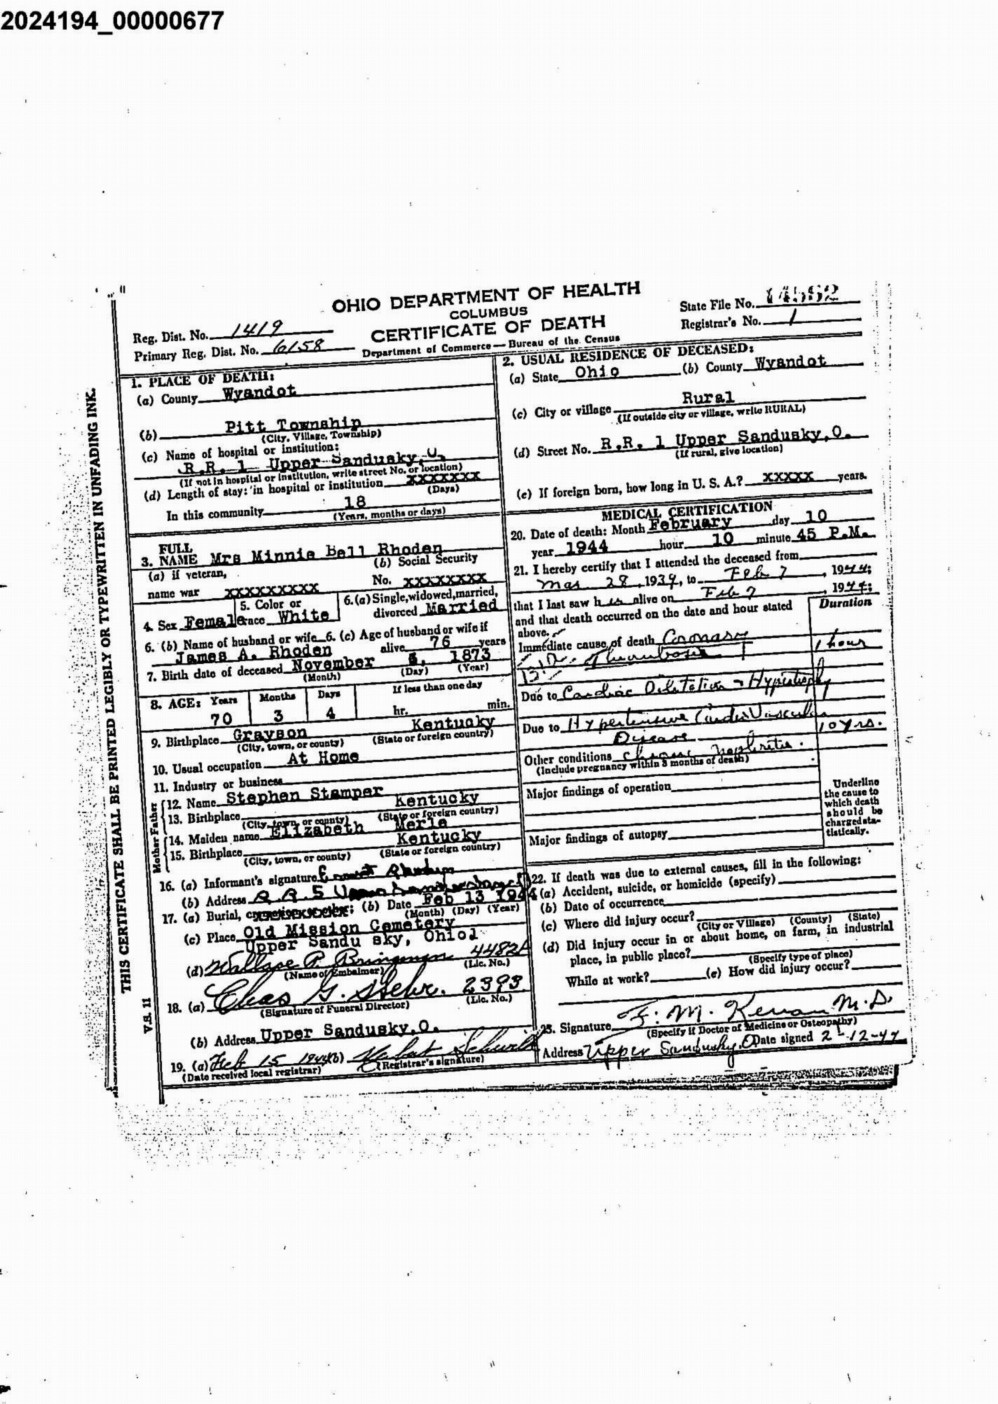 2024194_00000677
OHIO DEPARTMENT OF HEALTH
COLUMBUS
CERTIFICATE OF DEATH
Department of Commerce — Bureau of the Census
Reg. Dist. No. 1419
Primary Reg. Dist. No. 6158
State File No. 14562
Registrar's No. 1
THIS CERTIFICATE SHALL BE PRINTED LEGIBLY OR TYPEWRITTEN IN UNFADING INK.
V.S. 11
1. PLACE OF DEATH:
(a) County Wyandot
(b) Pitt Township
(City, Village, Township)
(c) Name of hospital or institution:
R.R. 1 Upper Sandusky, O.
(If not in hospital or institution, write street No. or location)
(d) Length of stay: in hospital or institution XXXXXXXX
(Days)
In this community 18
(Years, months or days)
2. USUAL RESIDENCE OF DECEASED:
(a) State Ohio (b) County Wyandot
(c) City or village Rural
(If outside city or village, write RURAL)
(d) Street No. R.R. 1 Upper Sandusky, O.
(If rural, give location)
(e) If foreign born, how long in U. S. A.? XXXXX years.
3. FULL NAME Mrs Minnie Bell Rhoden
(a) If veteran, name war XXXXXXXXX
(b) Social Security No. XXXXXXXX
4. Sex Female 5. Color or race White
6. (a) Single, widowed, married, divorced Married
6. (b) Name of husband or wife James A. Rhoden
6. (c) Age of husband or wife if alive 76 years
7. Birth date of deceased November 6, 1873
(Month) (Day) (Year)
8. AGE: Years Months Days If less than one day
70 3 4 hr. min.
9. Birthplace Grayson Kentucky
(City, town, or county) (State or foreign country)
10. Usual occupation At Home
11. Industry or business
Father
12. Name Stephen Stamper
13. Birthplace Kentucky
(City, town, or county) (State or foreign country)
Mother
14. Maiden name Elizabeth Merle
15. Birthplace Kentucky
(City, town, or county) (State or foreign country)
16. (a) Informant's signature Ernest Rhoden
(b) Address R.R. 5 Upper Sandusky
17. (a) Burial, (b) Date Feb 13 1944
(Month) (Day) (Year)
(c) Place Old Mission Cemetery
Upper Sandu sky, Ohio
(d) Wallace P. 4482A
(Name of Embalmer) (Lic. No.)
18. (a) Chas G. Stehr. 2393
(Signature of Funeral Director) (Lic. No.)
(b) Address Upper Sandusky, O.
19. (a) Feb 15 1944 (b)
(Date received local registrar) (Registrar's signature)
MEDICAL CERTIFICATION
20. Date of death: Month February day 10
year 1944 hour 10 minute 45 P.M.
21. I hereby certify that I attended the deceased from
Mar 28, 1939, to Feb 7, 1944;
that I last saw her alive on Feb 7, 1944;
and that death occurred on the date and hour stated above.
Duration
Immediate cause of death Coronary
Thrombosis 1 hour
Due to Cardiac Dilatation & Hypertrophy
Due to Hypertensive Cardio Vascular
Disease 10 yrs.
Other conditions Chronic nephritis.
(Include pregnancy within 3 months of death)
Major findings of operation
Major findings of autopsy
Underline the cause to which death should be charged statistically.
22. If death was due to external causes, fill in the following:
(a) Accident, suicide, or homicide (specify)
(b) Date of occurrence
(c) Where did injury occur?
(City or Village) (County) (State)
(d) Did injury occur in or about home, on farm, in industrial
place, in public place?
(Specify type of place)
While at work? (e) How did injury occur?
23. Signature F. M. Kenan M.D.
(Specify if Doctor of Medicine or Osteopathy)
Address Upper Sandusky, O Date signed 2-12-44